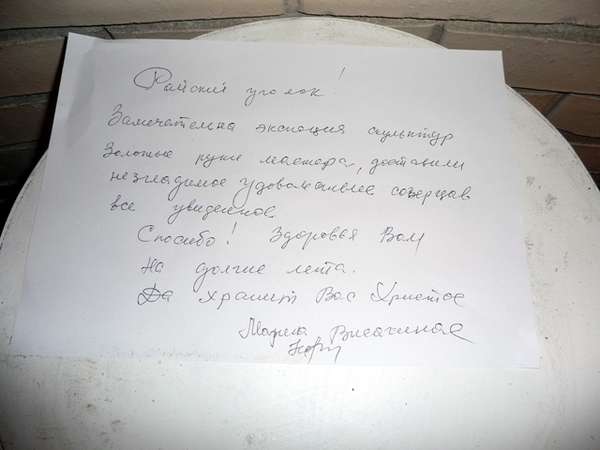 Райский уголок!
Замечательна экспоция скульптур
Золотые руки мастера, доставили
незгладимое удовольствие созерцав
все увиденное
Спосибо! Здоровья Вам
На долгие лета.
Да хранит Вас Христос
Мария